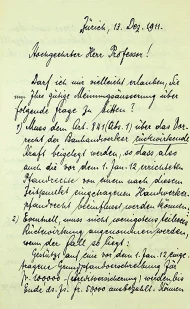 Zürich, 13. Dez. 1911.
Hochgeehrter Herr Professor!
Darf ich mir vielleicht erlauben, Sie
um Ihre gütige Meinungsäusserung über
folgende Frage zu bitten?
1) Muss dem Art. 841 (Abs. 1) über das Vor-
recht der Bauhandwerker rückwirkende
Kraft beigelegt werden, so dass also
auch die vor dem 1. Jan. 12 errichteten
Pfandrechte von einem nach diesem
Zeitpunkt eingetragenen Handwerker-
pfandrecht beeinflusst werden können.
2) Eventuell, muss nicht wenigstens teilweise
Rückwirkung angenommen werden,
wenn der Fall so liegt:
Gestützt auf eine vor dem 1. Jan. 12 einge-
tragene Grundpfandverschreibung für
fr. 100000 werden bis
Ende ds. Js. fr. 50000 ausbezahlt. Können